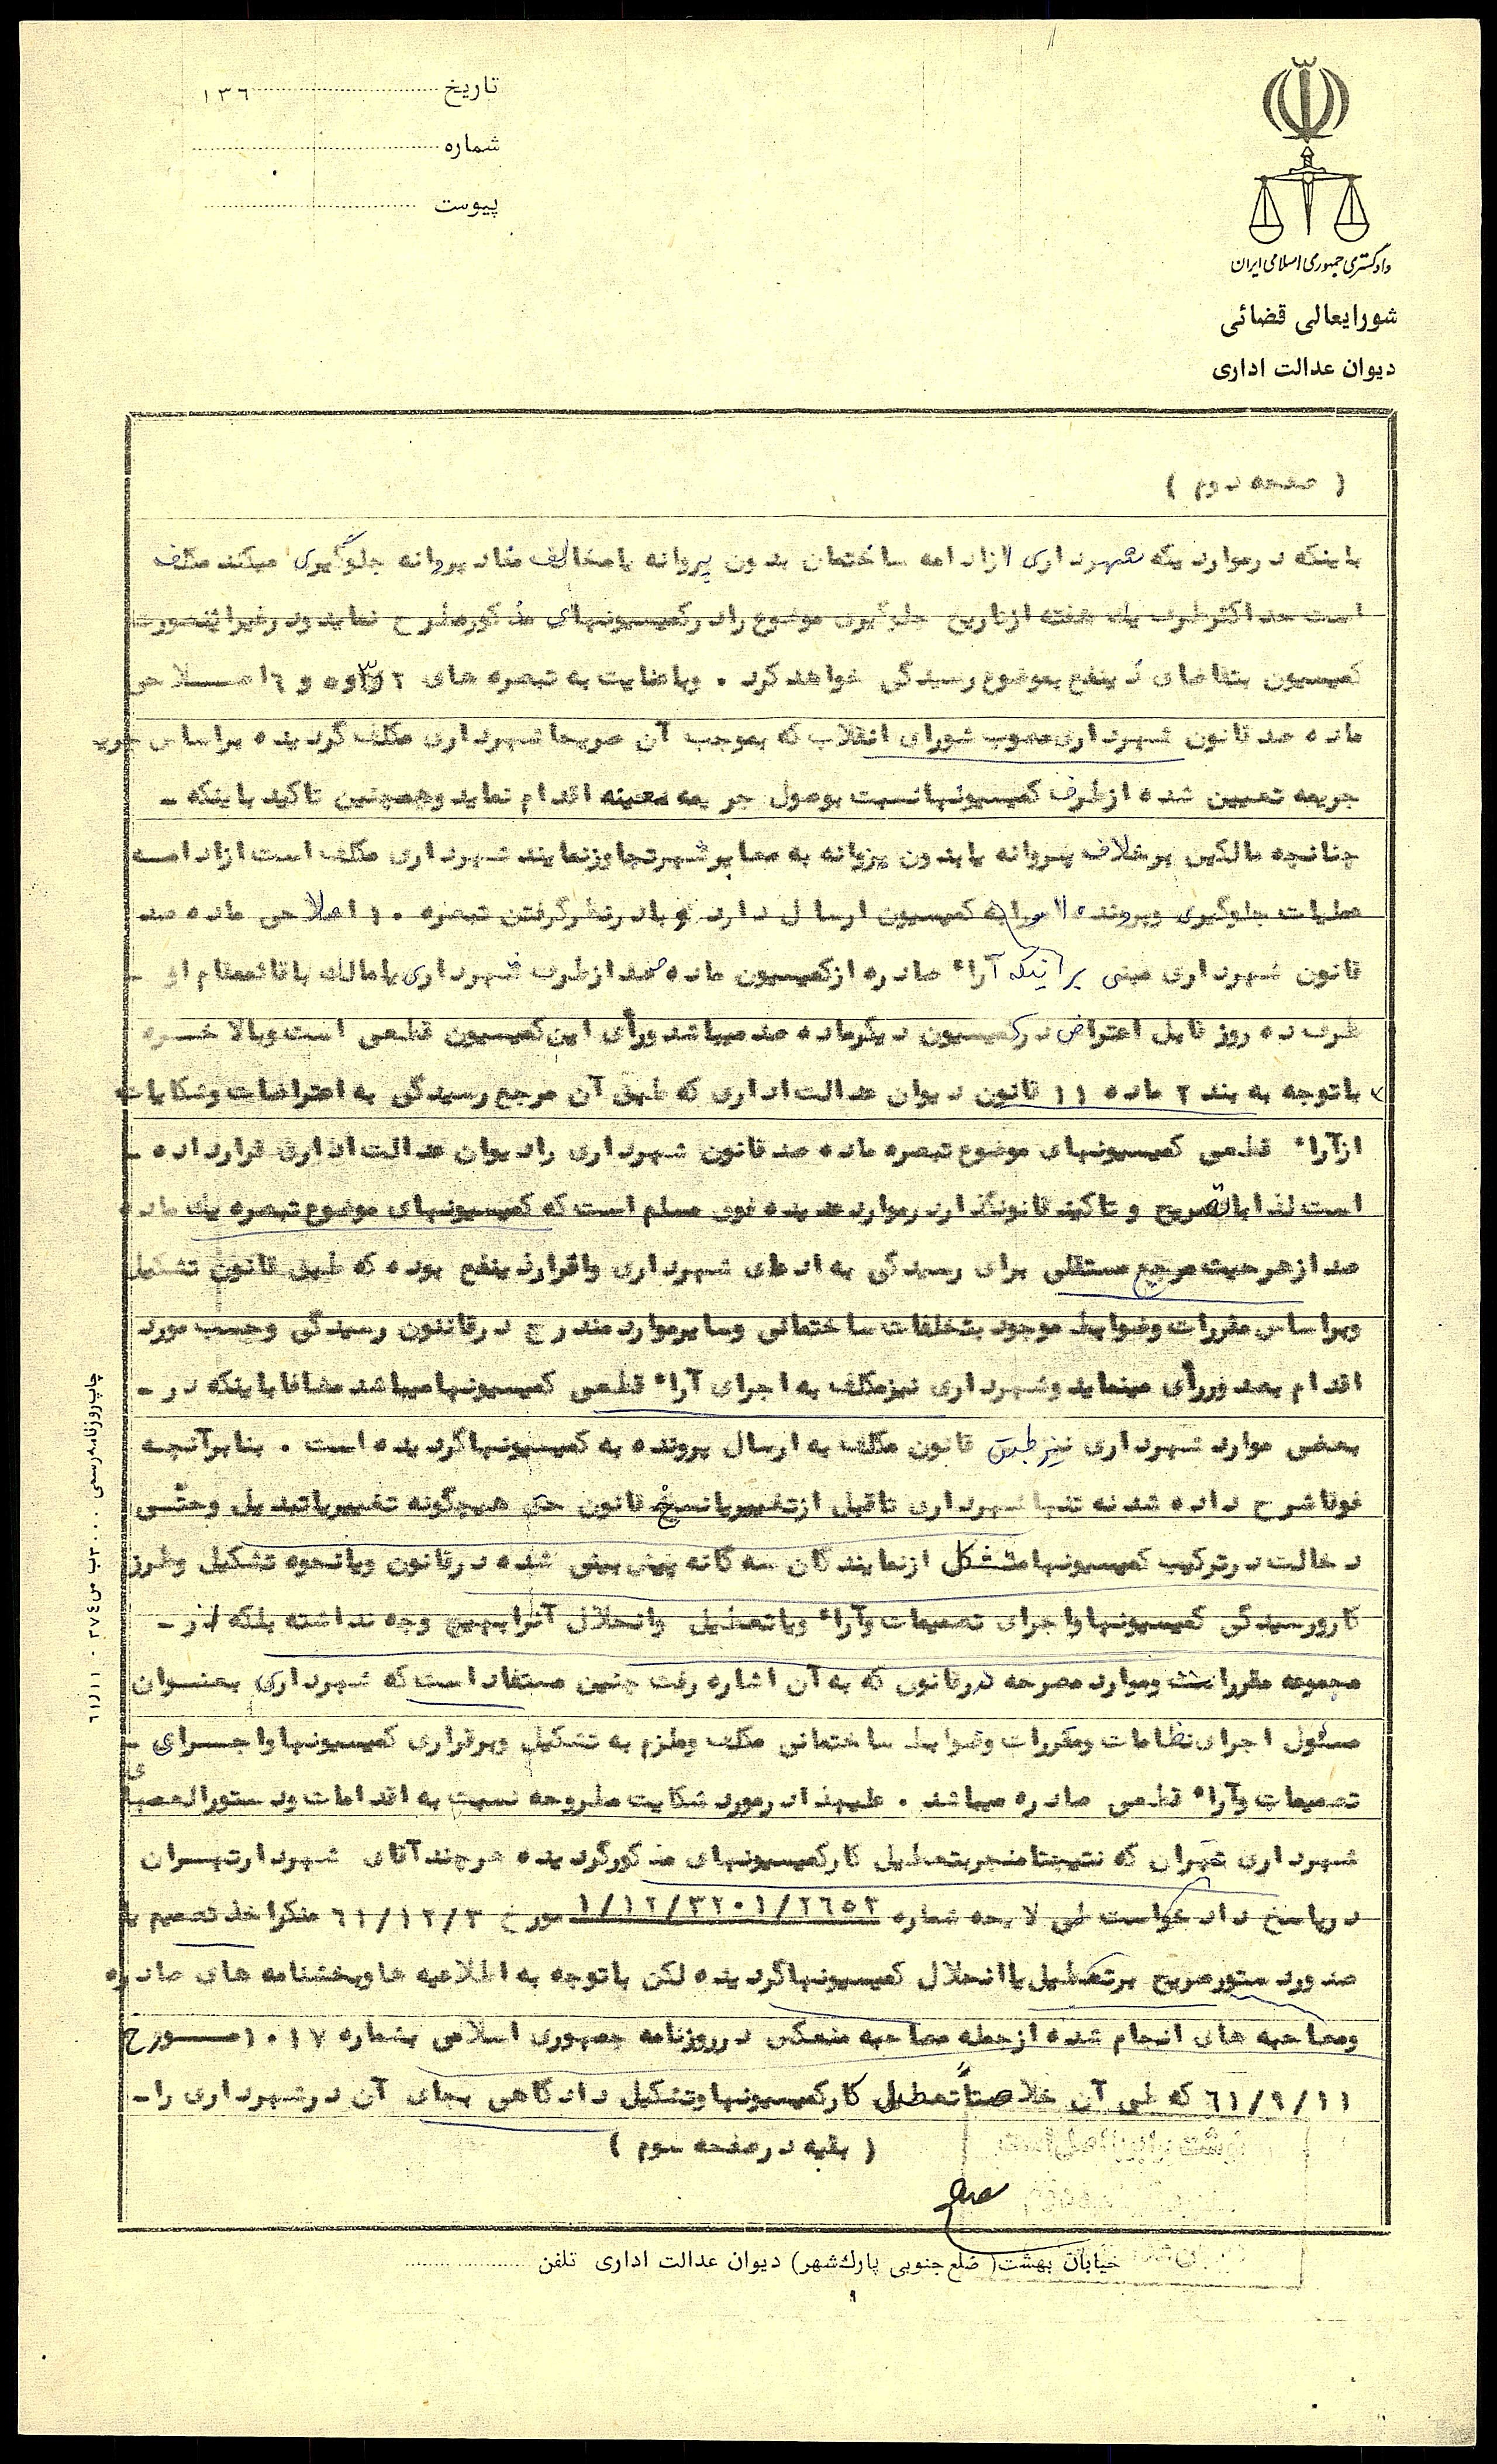 تاریخ ۱۳۶
شماره
پیوست
دادگستری جمهوری اسلامی ایران
شورایعالی قضائی
دیوان عدالت اداری
( صفحه دوم )
باینکه درمواردیکه شهرداری ازادامه ساختمان بدون پروانه یامخالف مفاد پروانه جلوگیری میکند مکلف
است حداکثرظرف یك هفته ازتاریخ جلوگیری موضوع رادرکمیسیونهای مذکورمطرح نماید ودرغیراینصورت
کمیسیون بتقاضای ذینفع بموضوع رسیدگی خواهد کرد . وباعنایت به تبصره های ۲و۳و۵ و ۶ اصـلاحی
ماده صد قانون شهرداری مصوب شورای انقلاب که بموجب آن صریحا شهرداری مکلف گردیده براساس
جریمه تعیین شده ازطرف کمیسیونها نسبت بوصول جریمه معینه اقدام نماید وهمچنین تاکید باینکه -
چنانچه مالکین برخلاف پروانه یابدون پروانه به معابر شهرتجاوزنمایند شهرداری مکلف است ازادامـه
عملیات جلوگیری وپرونده امررابه کمیسیون ارسال دارد و بادرنظرگرفتن تبصره ۱۰ اصلاحی ماده صد
قانون شهرداری مبنی براینکه آراء صادره ازکمیسیون ماده صد ازطرف شهرداری یامالك یاقائممقام او -
ظرف ده روز قابل اعتراض درکمیسیون دیگرماده صد میباشد ورأی این کمیسیون قطعی است وبالاخـره
باتوجه به بند ۲ ماده ۱۱ قانون دیوان عدالت اداری که طبق آن مرجع رسیدگی به اعتراضات وشکایات
ازآراء قطعی کمیسیونهای موضوع تبصره ماده صد قانون شهرداری رادیوان عدالت اداری قرارداده -
است لذا باتصریح و تاکید قانونگذار درموارد عدیده فوق مسلم است که کمیسیونهای موضوع تبصره یك ماده
صد ازهرحیث مرجع مستقلی برای رسیدگی به ادعای شهرداری وافراد ذینفع بوده که طبق قانون تشکیل
وبراساس مقررات وضوابط موجود بتخلفات ساختمانی وسایرموارد مندرج درقانون رسیدگی وحسب مورد
اقدام بصدوررأی مینماید وشهرداری نیزمکلف به اجرای آراء قطعی کمیسیونها میباشد مضافا باینکه در -
بعضی موارد شهرداری نیز طبق قانون مکلف به ارسال پرونده به کمیسیونها گردیده است . بنابرآنچـه
فوقا شرح داده شد نه تنها شهرداری تاقبل ازتغییریانسخ قانون حق هیچگونه تغییریاتبدیل وحتـی
دخالت درترکیب کمیسیونها متشکل ازنمایندگان سه گانه پیش بینی شده درقانون ویانحوه تشکیل وطرز
کارورسیدگی کمیسیونها واجرای تصمیمات وآراء ویاتعطیل وانحلال آنرا بهیچ وجه نداشته بلکه از -
مجموعه مقررات وموارد مصرحه درقانون که به آن اشاره رفت چنین مستفاد است که شهرداری بعنـوان
مسئول اجرای نظامات ومقررات وضوابط ساختمانی مکلف وملزم به تشکیل وبرقراری کمیسیونها واجـرای -
تصمیمات وآراء قطعی صادره میباشد . علیهذا درمورد شکایت مطروحه نسبت به اقدامات ودستورالعمهای
شهرداری تهران که نتیجتا منجربتعطیل کارکمیسیونهای مذکورگردیده هرچند آقای شهردارتهـران
درپاسخ دادخواست طی لایحه شماره ۱/۱۲/۳۲۰۱/۲۶۵۲ مورخ ۶۱/۱۲/۳ منکراخذ تصمیم یا
صدوردستورصریح برتعطیل یاانحلال کمیسیونها گردیده لکن باتوجه به اطلاعیه هاوبخشنامه های صادره
ومصاحبه های انجام شده ازجمله مصاحبه منعکس درروزنامه جمهوری اسلامی بشماره ۱۰۱۷ مـورخ
۶۱/۹/۱۱ که طی آن خلاصتاً تعطیل کارکمیسیونها وتشکیل دادگاهی بجای آن درشهرداری را -
( بقیه درصفحه سوم )
خیابان بهشت ( ضلع جنوبی پارك شهر ) دیوان عدالت اداری تلفن
چاپ روزنامه رسمی